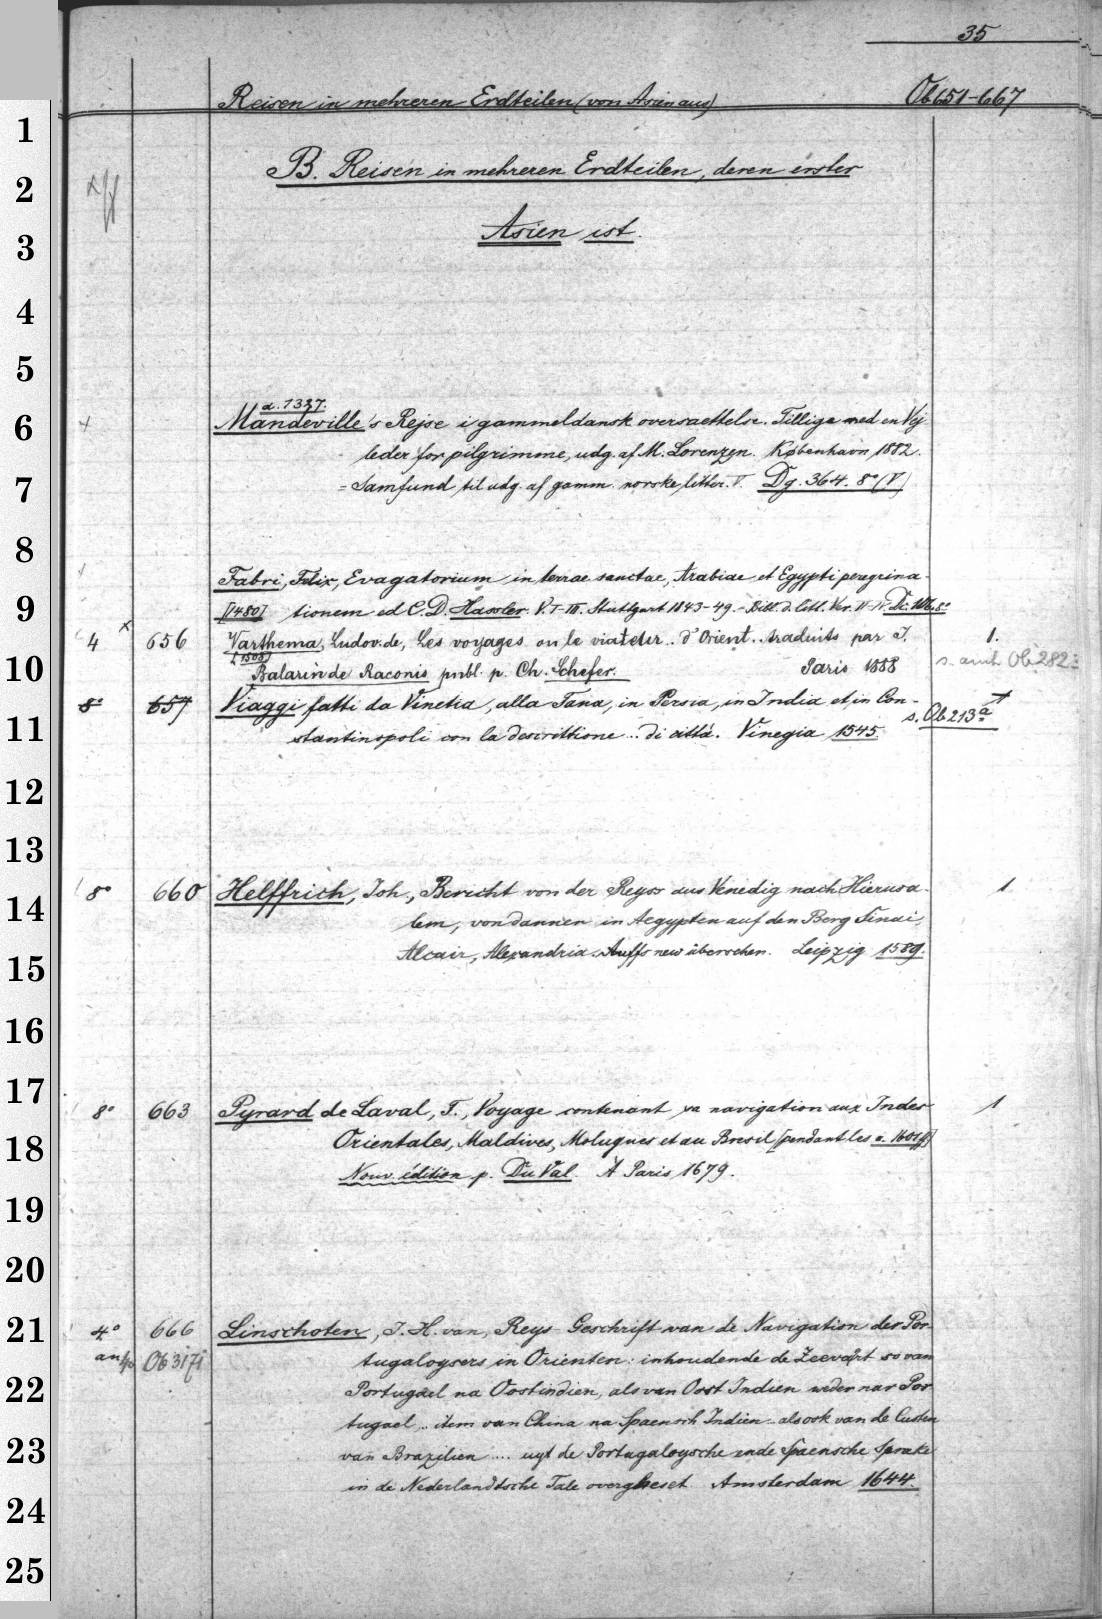 35
Reisen in mehreren Erdteilen (von Asien aus) Ob 651-667
B. Reisen in mehreren Erdteilen, deren erster
Asien ist.
a. 1327.
Mandeville's Rejse i gammeldansk oversaettelse. Tillige med en Vej-
leder for pilgrimme, udg. af M. Lorenzen. København 1882.
= Samfund til udg. af gamm. norske litter. V. Dg. 364. 8° (V)
Fabri, Felix, Evagatorium in terrae sanctae, Arabiae et Egypti peregrina-
[1480] tionem ed C. D. Hassler. V. I-III. Stuttgart 1843-49. - Bibl. d. litt. Ver. II-IV. 8°
4 x 656 Varthema, Ludov. de, Les voyages ou le viateur .. d'Orient .. traduits par J. 1.
[1508] Balarin de Raconis publ. p. Ch. Schefer. Paris 1888 s. auch Ob 282
8° 657 Viaggi fatti da Vinetia, alla Tana, in Persia, in India et in Con- 1
stantinopoli con la descrittione .. di città. Vinegia 1545. s. Ob 213a
8° 660 Helffrich, Joh., Bericht von der Reyss aus Venedig nach Hierusa- 1
lem, von dannen in Aegypten auf den Berg Sinai,
Alcair, Alexandria. Auffs new übersehen. Leipzig 1589.
8° 663 Pyrard de Laval, F., Voyage contenant sa navigation aux Indes 1
Orientales, Maldives, Moluques et au Bresil [pendant les a. 1601ff]
Nouv. édition p. Du Val. À Paris 1679.
4° 666 Linschoten, J. H. van, Reys-Geschrift van de Navigation der Por-
an Ob 3171 tugaloysers in Orienten: inhoudende de Zeevaert so van
Portugael na Oostindien, als van Oost Indien weder nar Por-
tugael, .. item van China na Spaensch Indien .. als ook van de Custen
van Brazilien .... uyt de Portugaloysche ende Spaensche Sprake
in de Nederlandtsche Tale overgheset Amsterdam 1644.
1
2
3
4
5
6
7
8
9
10
11
12
13
14
15
16
17
18
19
20
21
22
23
24
25